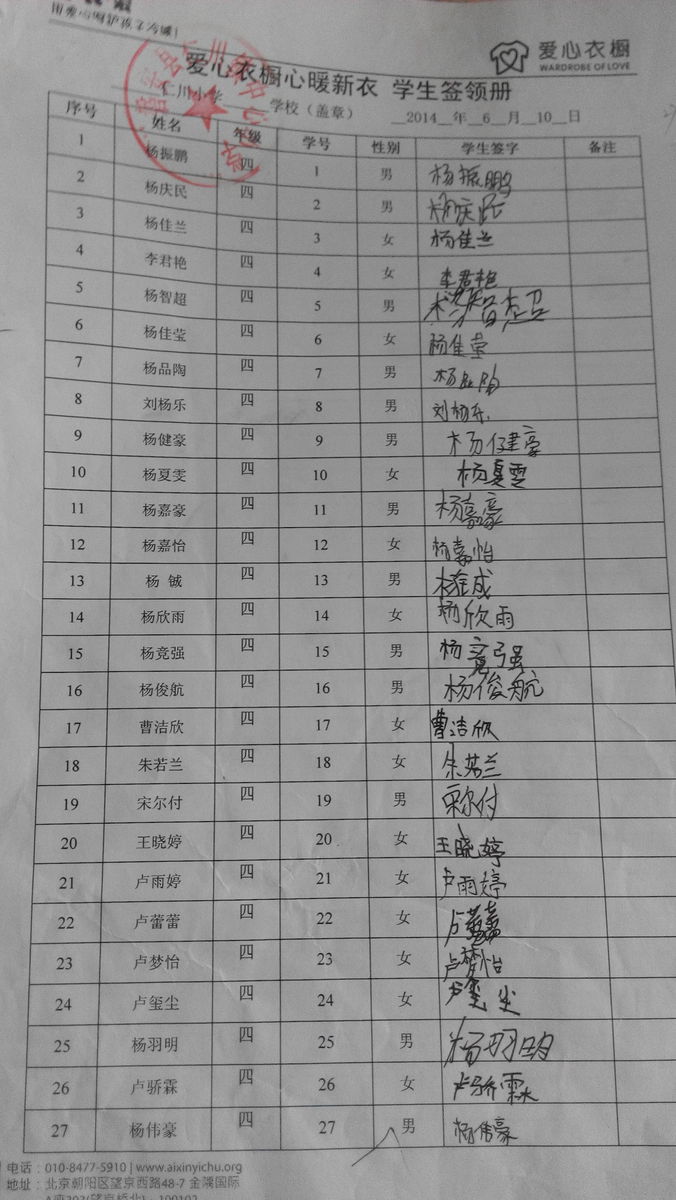 用爱心呵护孩子冷暖！
爱心衣橱
WARDROBE OF LOVE
爱心衣橱心暖新衣 学生签领册
仁川小学 学校（盖章） 2014 年 6 月 10 日
序号 姓名 年级 学号 性别 学生签字 备注
1 杨振鹏 四 1 男 杨振鹏
2 杨庆民 四 2 男 杨庆民
3 杨佳兰 四 3 女 杨佳兰
4 李君艳 四 4 女 李君艳
5 杨智超 四 5 男 杨智超
6 杨佳莹 四 6 女 杨佳莹
7 杨品陶 四 7 男 杨品陶
8 刘杨乐 四 8 男 刘杨乐
9 杨健豪 四 9 男 杨健豪
10 杨夏雯 四 10 女 杨夏雯
11 杨嘉豪 四 11 男 杨嘉豪
12 杨嘉怡 四 12 女 杨嘉怡
13 杨 铖 四 13 男
14 杨欣雨 四 14 女 杨欣雨
15 杨竞强 四 15 男 杨竟强
16 杨俊航 四 16 男 杨俊航
17 曹洁欣 四 17 女 曹洁欣
18 朱若兰 四 18 女 朱若兰
19 宋尔付 四 19 男 宋尔付
20 王晓婷 四 20 女 王晓婷
21 卢雨婷 四 21 女 卢雨婷
22 卢蕾蕾 四 22 女 卢蕾蕾
23 卢梦怡 四 23 女 卢梦怡
24 卢玺尘 四 24 女 卢玺尘
25 杨羽明 四 25 男 杨羽明
26 卢骄霖 四 26 女 卢骄霖
27 杨伟豪 四 27 男 杨伟豪
电话：010-8477-5910 | www.aixinyichu.org
地址：北京朝阳区望京西路48-7 金隅国际
A座203(望京桥北)，100102